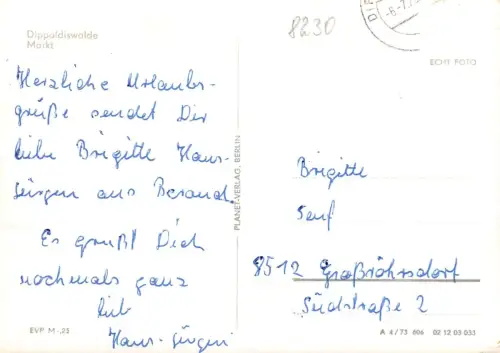 8230
Dippoldiswalde
Markt
Herzliche Urlaubs-
grüße sendet Dir
liebe Brigitte Hans-
Jürgen aus
Es grüßt Dich
nochmals ganz
lieb
Hans-Jürgen
EVP M -,25
PLANET-VERLAG, BERLIN
ECHT FOTO
Brigitte
Senf
8512 Großröhrsdorf
Südstraße 2
A 4/75 606 02 12 03 033